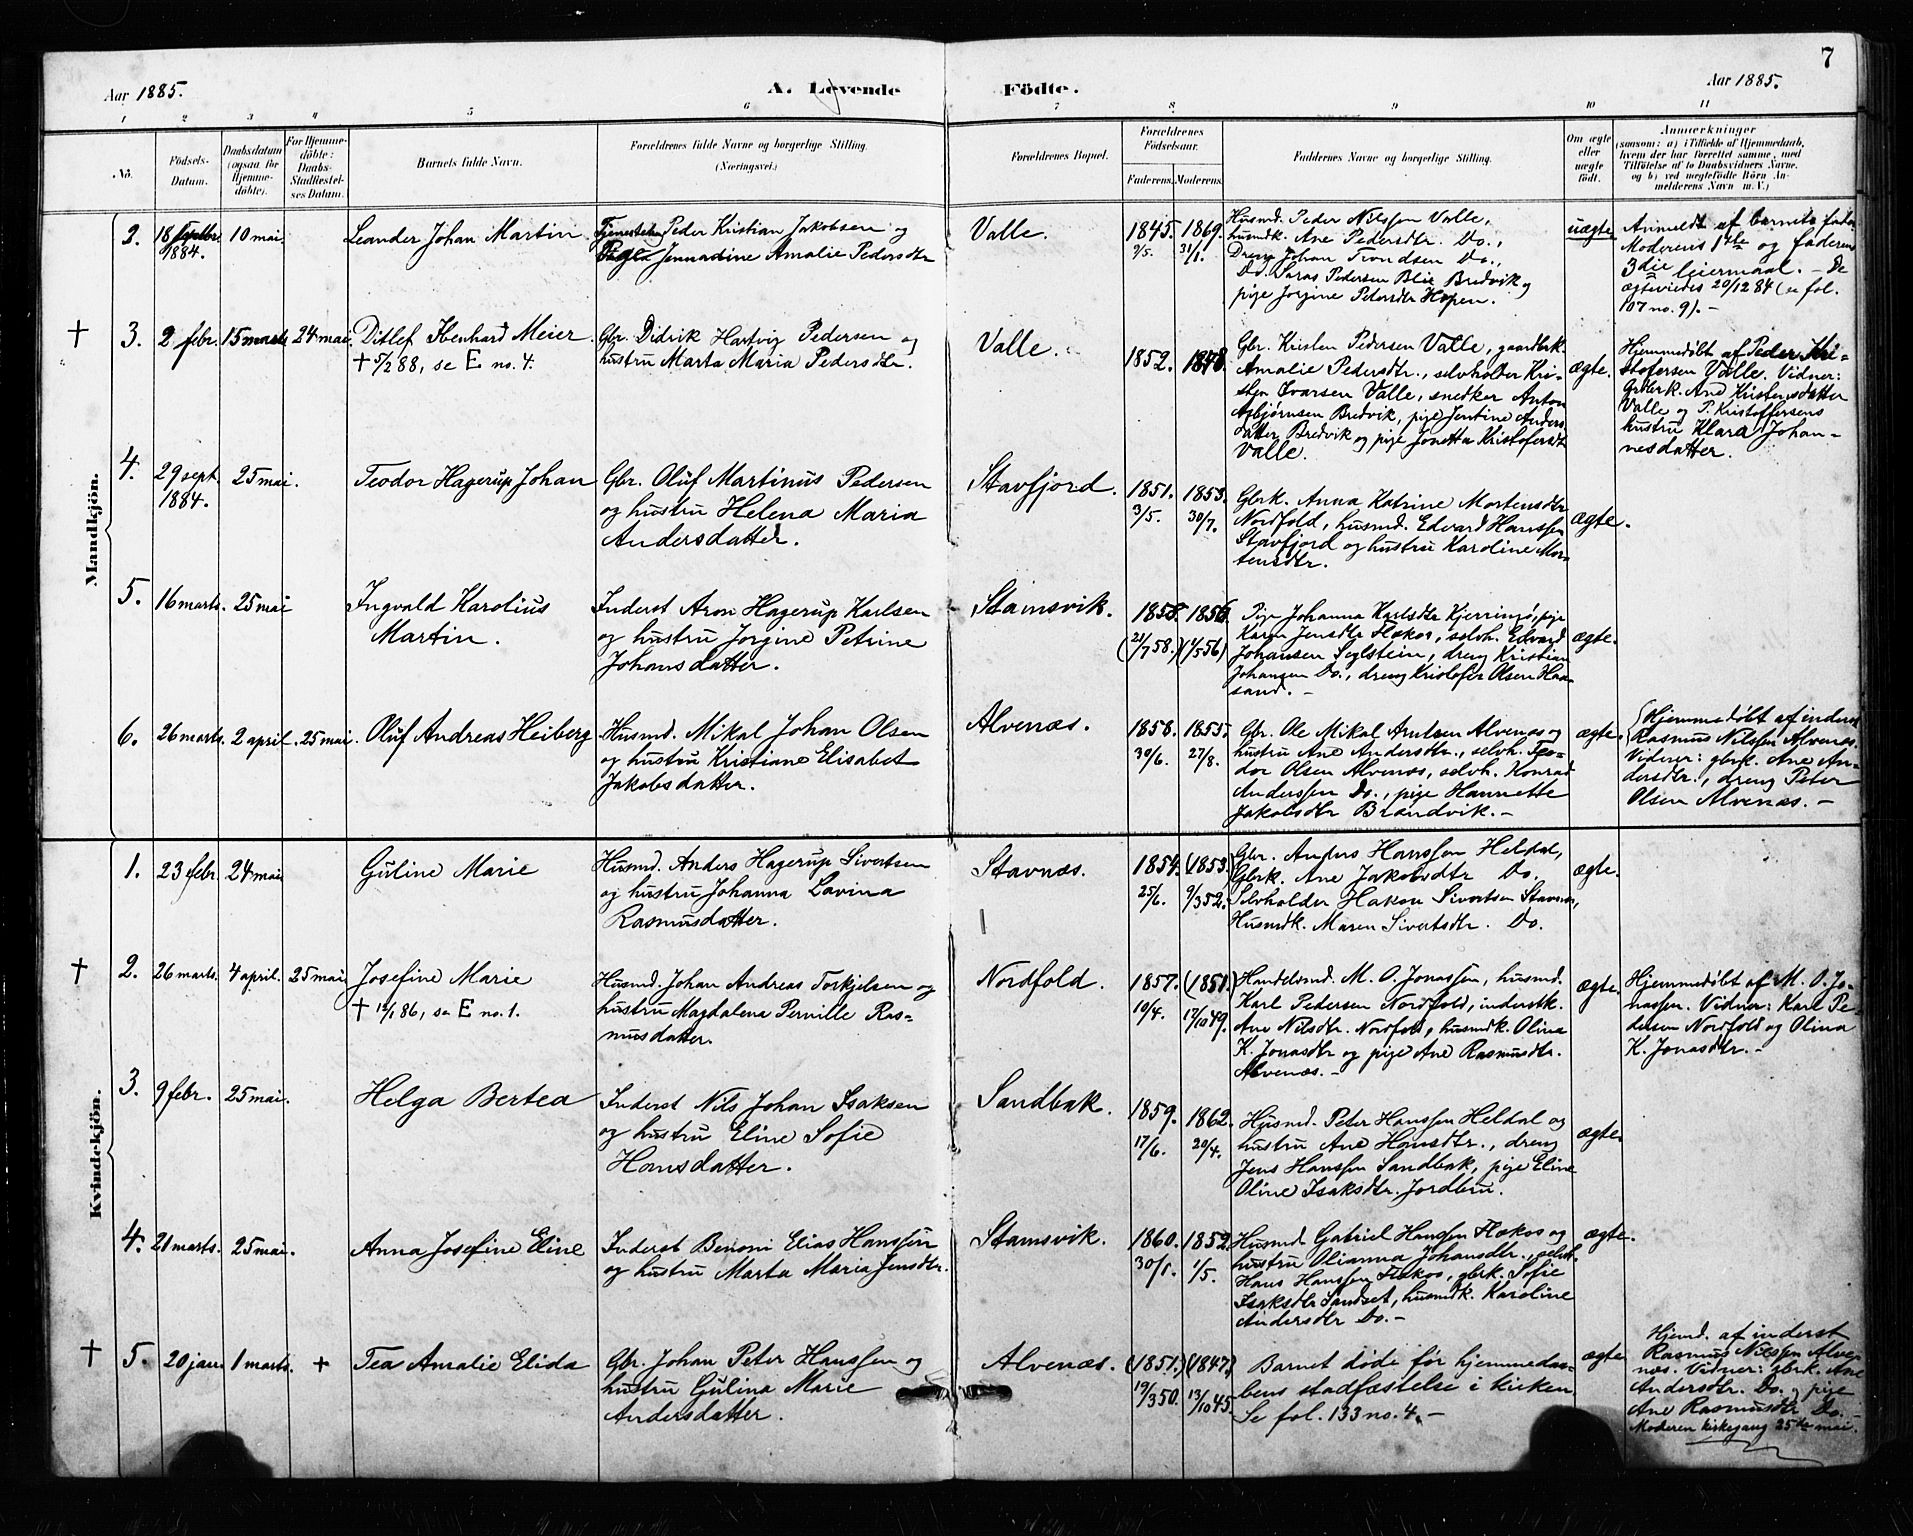 7
Aar 1885.
A. Levende
Födte.
Aar 1885.
1 2 3 4 5 6 7 8 9 10 11
No.
Födsels-
Datum.
Daabsdatum
(ogsaa for
Hjemme-
döbte).
For Hjemme-
döbte:
Daabs-
Stadfæstel-
ses Datum.
Barnets fulde Navn.
Forældrenes fulde Navne og borgerlige Stilling.
(Næringsvei.)
Forældrenes Bopæl.
Forældrenes
Födselsaar.
Faderens. Moderens.
Faddernes Navne og borgerlige Stilling.
Om ægte
eller
uægte
födt.
Anmærkninger
(saasom: a) i Tilfælde af Hjemmedaab,
hvem der har forrettet samme, med
Tilföielse af to Daabsvidners Navne,
og b) ved uægtefödte Börn An-
melderens Navn m. V.)
Mandkjön.
2.
1884.
10 mai
Leander Johan Martin
Peder Kristian Jakobsen og
Amalie Pedersdtr
Valle.
1845. 1869.
7/5. 31/1.
Husmd. Peder Nilssen Valle,
husmdk. Ane Pedersdtr. Do.,
Dreng Johan Trondsen Do.,
Do. Saras Pedersen Blie Bredvik og
pige Jorgine Petersdtr Hopen.
uægte
Anmeldt af barnets fader
Moderens 1ste og faderens
3die leiermaal. - De
ægteviedes 20/12 84 (se fol.
107 no. 9). -
† 3. 2 febr. 15 marts 24 mai.
Ditlef Ibenhard Meier
† 5/2 88, se E no. 4.
Gbr. Didrik Hartvig Pedersen og
hustru Marta Maria Pedersdtr.
Valle.
1852. 1848.
Gbr. Kristen Pedersen Valle, gaardbrk.
Amalie Pedersdtr., selvholder Kri-
sten Ivarsen Valle, snedker Anton
Asbjørnsen Bredvik, pige Jentine Anders
datter Bredvik og pige Jonetta Kristofersdtr
Valle.
ægte.
Hjemmedøbt af Peder Kri-
stofersen Valle. Vidner:
Gbrk. Ane Kristensdatter
Valle og P. Kristoffersens
hustru Klara Johan-
nesdatter.
4. 29 sept. 25 mai.
1884.
Teodor Hagerup Johan
Gbr. Oluf Martinus Pedersen
og hustru Helena Maria
Andersdatter.
Stavfjord.
1851. 1853.
3/5. 30/7.
Gbrk. Anna Katrine Mortensdtr
Nordfold, husmd. Edvard Hanssen
Stavfjord og hustru Karoline Mor-
tensdtr.
ægte.
5. 16 marts. 25 mai
Ingvald Karolius
Martin.
Inderst Aron Hagerup Karlsen
og hustru Jorgine Petrine
Johansdatter.
Stamsvik.
1858. 1856.
(21/7 58.) (1/5 56)
Pige Johanna Karlsdtr Kjerringö, pige
Karen Jensdtr Flokos, selvh. Edvard
Johansen Seglstein, dreng Kristian
Johansen Do., dreng Kristofer Olsen Haa-
sand. -
ægte.
6. 26 marts. 2 april. 25 mai.
Oluf Andreas Heiberg
Husmd. Mikal Johan Olsen
og hustru Kristiane Elisabet
Jakobsdatter.
Alvenæs.
1858. 1855.
30/6. 27/8.
Gbr. Ole Mikal Arntsen Alvenæs og
hustru Ane Andersdtr., selvh. Teo-
dor Olsen Alvenæs, selvh. Konrad
Anderssen Do., pige Hannette
Jakobsdtr Brandvik. -
ægte.
Hjemmedøbt af inderst
Rasmus Nilssen Alvenæs.
Vidner: gbrk. Ane An-
dersdtr., dreng Peter
Olsen Alvenæs. -
Kvindekjön.
1. 23 febr. 24 mai
Guline Marie
Husmd. Anders Hagerup Sivertsen
og hustru Johanna Lavina
Rasmusdatter.
Stavnæs.
1854. (1853.)
25/6. 9/3 52.
Gbr. Anders Hanssen Heldal,
Gbrk. Ane Jakobsdtr Do.
Selvholder Hakon Sivertsen Stavnæs,
Husmdk. Maren Sivertsdtr. Do.
ægte.
† 2. 26 marts. 4 april. 25 mai
Josefine Marie
† 14/1 86, se E no. 1.
Husmd. Johan Andreas Torkjelsen og
hustru Magdalena Pernille Ras-
musdatter.
Nordfold.
1857. (1851.)
10/4. 17/10 49.
Handelsmd. M. O. Jonassen, husmd.
Karl Pedersen Nordfold, inderstk.
Ane Nilsdtr. Nordfold, husmdk. Olina
K. Jonasdtr og pige Ane Rasmusdtr.
Alvenæs. -
ægte.
Hjemmedøbt af M. O. Jo-
nassen. Vidner: Karl Pe-
dersen Nordfold og Olina
K. Jonasdtr. -
3. 9 febr. 25 mai.
Helga Bertea
Inderst Nils Johan Isaksen
og hustru Eline Sofie
Hansdatter.
Sandbak.
1859. 1862.
17/6. 20/4.
Husmd. Peter Hanssen Heldal og
hustru Ane Hansdtr., dreng
Jens Hanssen Sandbak, pige Eline
Oline Isaksdtr. Jordbru.
ægte.
4. 21 marts. 25 mai.
Anna Josefine Eline
Inderst Benoni Elias Hanssen
og hustru Marta Maria Jensdtr.
Stamsvik.
1860. 1852.
30/1. 1/5.
Husmd. Gabriel Hanssen Flokos og
hustru Olianna Johansdtr., selvh.
Hans Hanssen Flokos, gbrk. Sofie
Isaksdtr Sandset, husmdk. Karoline
Andersdtr Do. -
ægte.
† 5. 20 jan. 1 marts. +
Tea Amalie Elida
Gbr. Johan Peter Hanssen og
hustru Gulina Marie
Andersdatter.
Alvenæs.
(1851.) (1847.)
19/3 50. 13/10 45.
Barnet döde för hjemmedaa-
bens stadfæstelse i kirken.
Se fol. 133 no. 4. -
ægte
Hjemd. af inderst
Rasmus Nilssen Alve-
næs. Vidner: gbrk. Ane
Andersdtr. Do. og pige
Ane Rasmusdtr Do. -
Moderen kirkegang 25de mai.